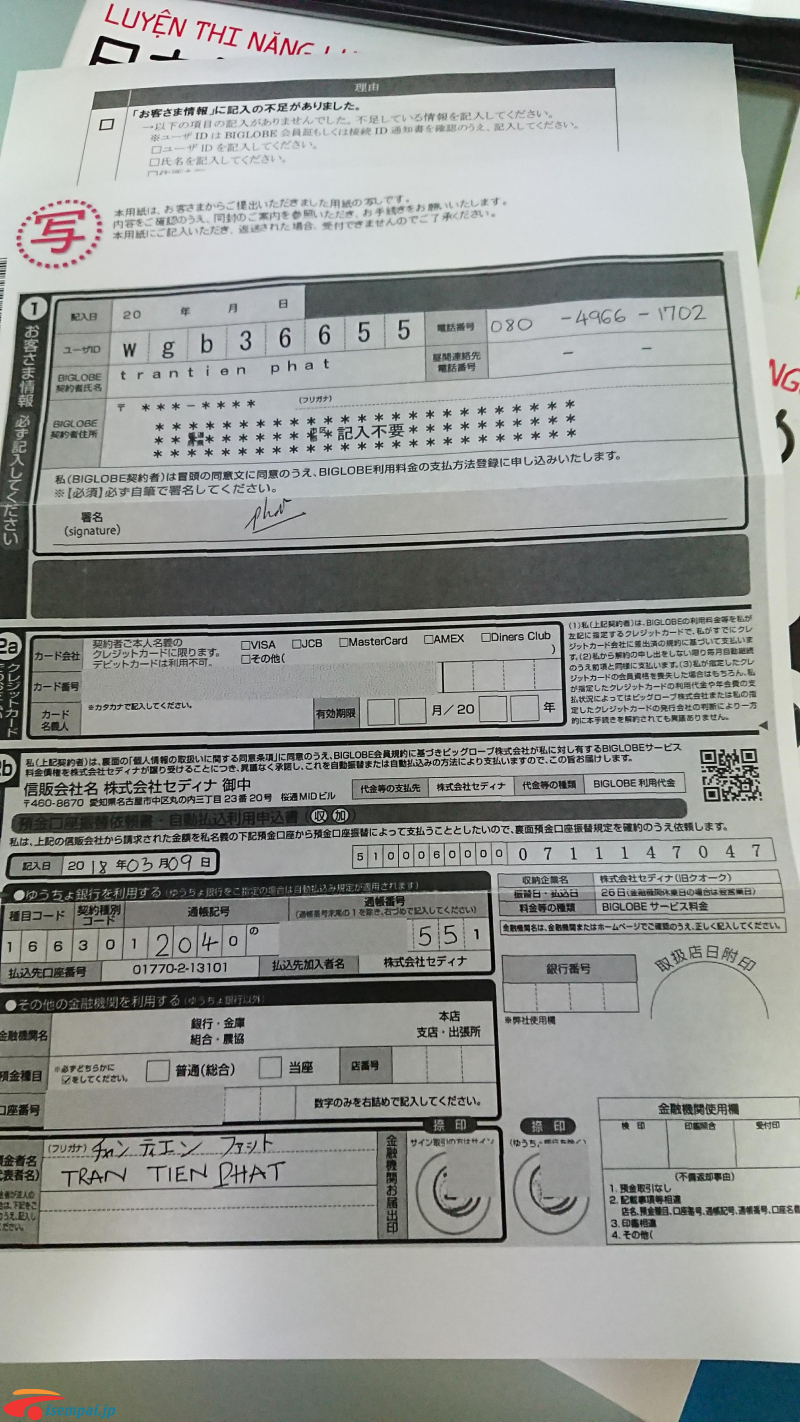 LUYỆN THI NĂNG L
理由
□ 「お客さま情報」に記入の不足がありました。
→以下の項目の記入がありませんでした。不足している情報を記入してください。
※ユーザIDはBIGLOBE会員証もしくは接続ID通知書を確認のうえ、記入してください。
□ユーザIDを記入してください。
□氏名を記入してください。
写
本用紙は、お客さまからご提出いただきました用紙の写しです。
内容をご確認のうえ、同封のご案内を参照いただき、お手続きをお願いいたします。
本用紙にご記入いただき、返送された場合、受付できませんのでご了承ください。
1 お客さま情報 必ず記入してください
記入日 20 年 月 日
ユーザID w g b 3 6 6 5 5
電話番号 080 -4966-1702
BIGLOBE契約者氏名 trantien phat
昼間連絡先電話番号 - -
BIGLOBE契約者住所 〒 ***-**** (フリガナ)
記入不要
私(BIGLOBE契約者)は冒頭の同意文に同意のうえ、BIGLOBE利用料金の支払方法登録に申し込みいたします。
※【必須】必ず自筆で署名してください。
署名
(signature) phat
2a クレジットカード
カード会社 契約者ご本人名義の
クレジットカードに限ります。
デビットカードは利用不可。
□VISA □JCB □MasterCard □AMEX □Diners Club
□その他( )
カード番号
カード名義人 ※カタカナで記入してください。
有効期限 月/20 年
(1)私(上記契約者)は、BIGLOBEの利用料金等を私が
左記に指定するクレジットカードで、私がすでにクレ
ジットカード会社に差出済の規約に基づいて支払いま
す。(2)私から解約の申し出をしない限り毎月自動継続
のうえ前項と同様に支払います。(3)私が指定したクレ
ジットカードの会員資格を喪失した場合はもちろん、私
が指定したクレジットカードの利用代金や年会費の支
払状況によってはビッグローブ株式会社または私の指
定したクレジットカードの発行会社の判断により一方
的に本手続きを解約されても異議ありません。
2b
私(上記契約者)は、裏面の「個人情報の取扱いに関する同意条項」に同意のうえ、BIGLOBE会員規約に基づきビッグローブ株式会社が私に対し有するBIGLOBEサービス
料金債権を株式会社セディナが譲り受けることにつき、異議なく承諾し、これを自動振替または自動払込みの方法により支払いますので、この旨お届けします。
信販会社名 株式会社セディナ 御中
〒460-8670 愛知県名古屋市中区丸の内三丁目23番20号 桜通MIDビル
代金等の支払先 株式会社セディナ 代金等の種類 BIGLOBE利用代金
預金口座振替依頼書・自動払込利用申込書 収 加
私は、上記の信販会社から請求された金額を私名義の下記預金口座から預金口座振替によって支払うこととしたいので、裏面預金口座振替規定を確約のうえ依頼します。
記入日 2018年03月09日
5100060000 0711147047
●ゆうちょ銀行を利用する(ゆうちょ銀行をご指定の場合は自動払込み規定が適用されます)
種目コード 契約種別コード 通帳記号 通帳番号
(通帳番号末尾の1を除き、右づめで記入してください)
166 30 1 2040 の 551
払込先口座番号 01770-2-13101 払込先加入者名 株式会社セディナ
収納企業名 株式会社セディナ(旧クオーク)
振替日・払込日 26日(金融機関休業日の場合は翌営業日)
料金等の種類 BIGLOBEサービス料金
金融機関名は、金融機関またはホームページでご確認のうえ、正しく記入してください。
銀行番号
※弊社使用欄
取扱店日附印
●その他の金融機関を利用する(ゆうちょ銀行以外)
金融機関名 銀行・金庫
組合・農協
本店
支店・出張所
預金種目 ※必ずどちらかに☑をしてください。 普通(総合) 当座 店番号
口座番号 数字のみを右詰めで記入してください。
(フリガナ) チャン ティエン ファット
TRAN TIEN PHAT
金融機関お届出印
捺印 捺印
サイン取引の方はサイン
金融機関使用欄
検印 印鑑照合 受付印
(不備返却事由)
1. 預金取引なし
2. 記載事項等相違
店名、預金種目、口座番号、通帳記号、通帳番号、口座名義
3. 印鑑相違
4. その他(
isempai.jp